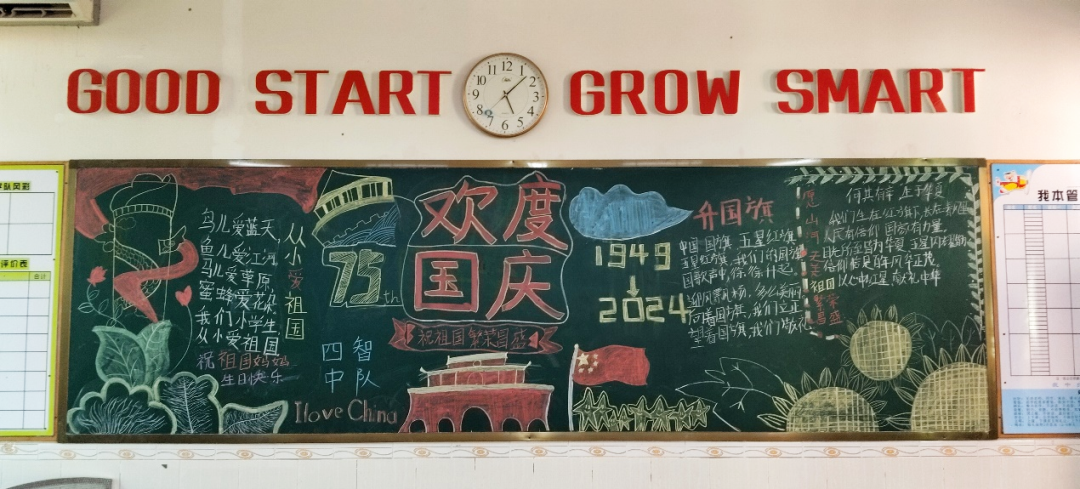 GOOD START GROW SMART
12
1
2
3
4
5
6
7
8
9
10
11
评价表
鸟儿爱蓝天,
鱼儿爱江河,
马儿爱草原,
蜜蜂爱花朵,
我们小学生,
从小爱祖国
从小爱祖国
祝祖国妈妈
生日快乐
75th
四智
中队
I love China
欢度
国庆
祝祖国繁荣国盛
1949
2024
升国旗
中国国旗,五星红旗,
国歌声中,徐徐升起,
迎风飘扬,多么美丽
向着国旗,我们立正
望着国旗,我们敬礼
愿山河无恙
祖国繁荣昌盛
何其有幸 生于华夏
我们生在红旗下
人民有信仰 国家有力量
目光所至皆为华夏 五星闪耀
我本管